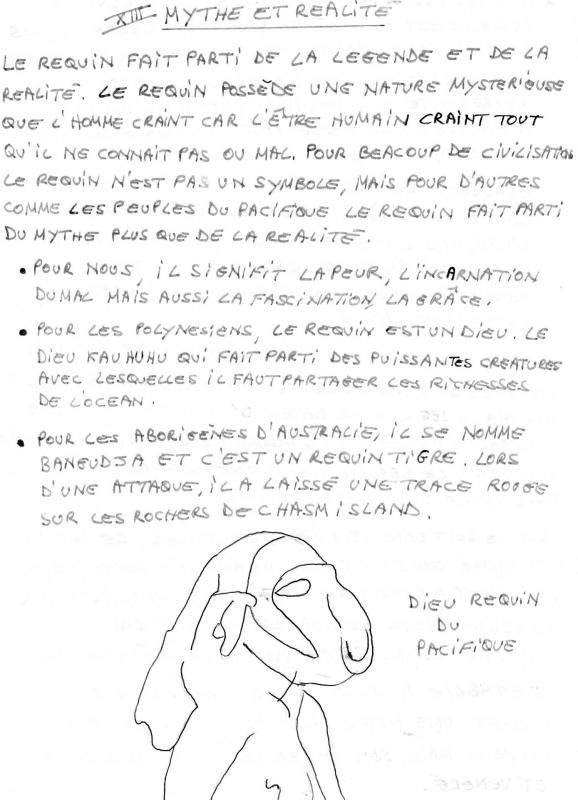 XIII MYTHE ET REALITE
LE REQUIN FAIT PARTI DE LA LEGENDE ET DE LA
REALITÉ. LE REQUIN POSSÈDE UNE NATURE MYSTERIEUSE
QUE L'HOMME CRAINT CAR L'ÊTRE HUMAIN CRAINT TOUT
QU'IL NE CONNAIT PAS OU MAL. POUR BEACOUP DE CIVILISATION
LE REQUIN N'EST PAS UN SYMBOLE, MAIS POUR D'AUTRES
COMME LES PEUPLES DU PACIFIQUE LE REQUIN FAIT PARTI
DU MYTHE PLUS QUE DE LA REALITÉ.
• POUR NOUS, IL SIGNIFIT LA PEUR, L'INCARNATION
DU MAL MAIS AUSSI LA FASCINATION, LA GRÂCE.
• POUR LES POLYNESIENS, LE REQUIN EST UN DIEU. LE
DIEU KAUHUHU QUI FAIT PARTI DES PUISSANTES CREATURES
AVEC LESQUELLES IL FAUT PARTAGER LES RICHESSES
DE L'OCEAN.
• POUR LES ABORIGÈNES D'AUSTRALIE, IL SE NOMME
BANGUDJA ET C'EST UN REQUIN TIGRE. LORS
D'UNE ATTAQUE, IL A LAISSÉ UNE TRACE ROUGE
SUR LES ROCHERS DE CHASM ISLAND.
DIEU REQUIN
DU
PACIFIQUE